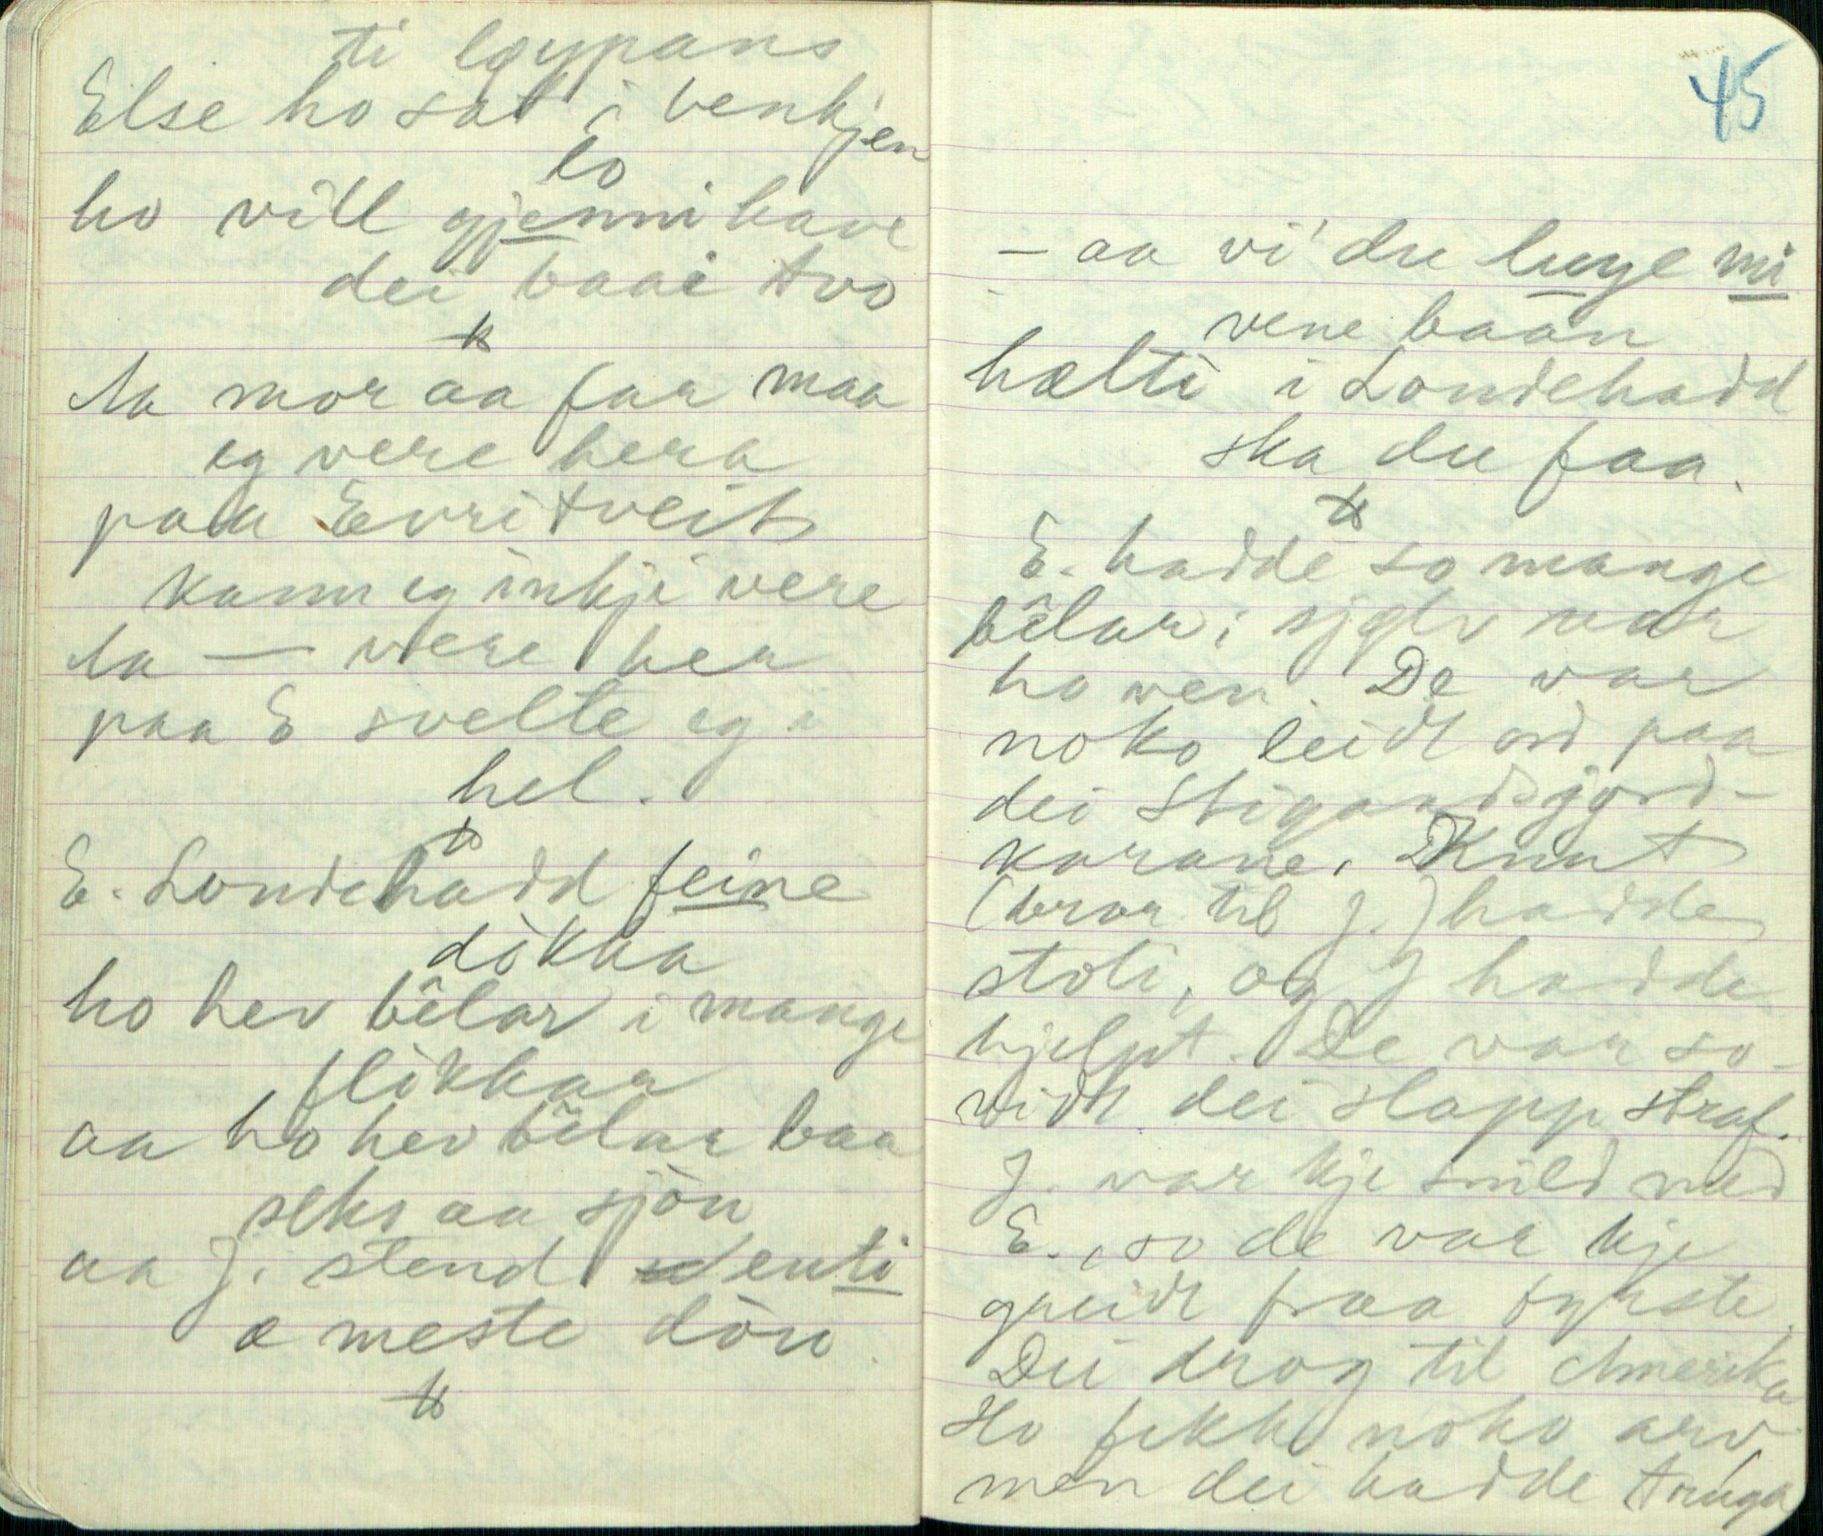 ti løypans
Else ho sat i benkjen
lo
ho vill gjenni have
dei baae two
Aa mor aa far maa
eg vere hera
paa Evritveit
kann eg inkje vere
Aa — vere her
paa E svelte eg i
hel.
E. Londehadd feine
dòkka
ho hev bêlar i mange
flòkkar
aa ho hev bêlar baa
seks aa sjòu
aa J. stend enti
æ meste dòn
45
— aa vi du luge mi
vene baan
hælti i Londehadd
ska du faa.
E. hadde so mange
bêlar; sjølv var
ho ven. De var
noko leidt ord paa
dei Stigandsjord-
karane. Knut
(bror til J.) hadde
stoli, og J hadde
hjelpt. De var so-
vidt dei slapp straf.
J. var kje snild med
E., so de var kje
greidt fraa fyrste.
Dei drog til Amerika
Ho fekk noko arv
men dei hadde truga